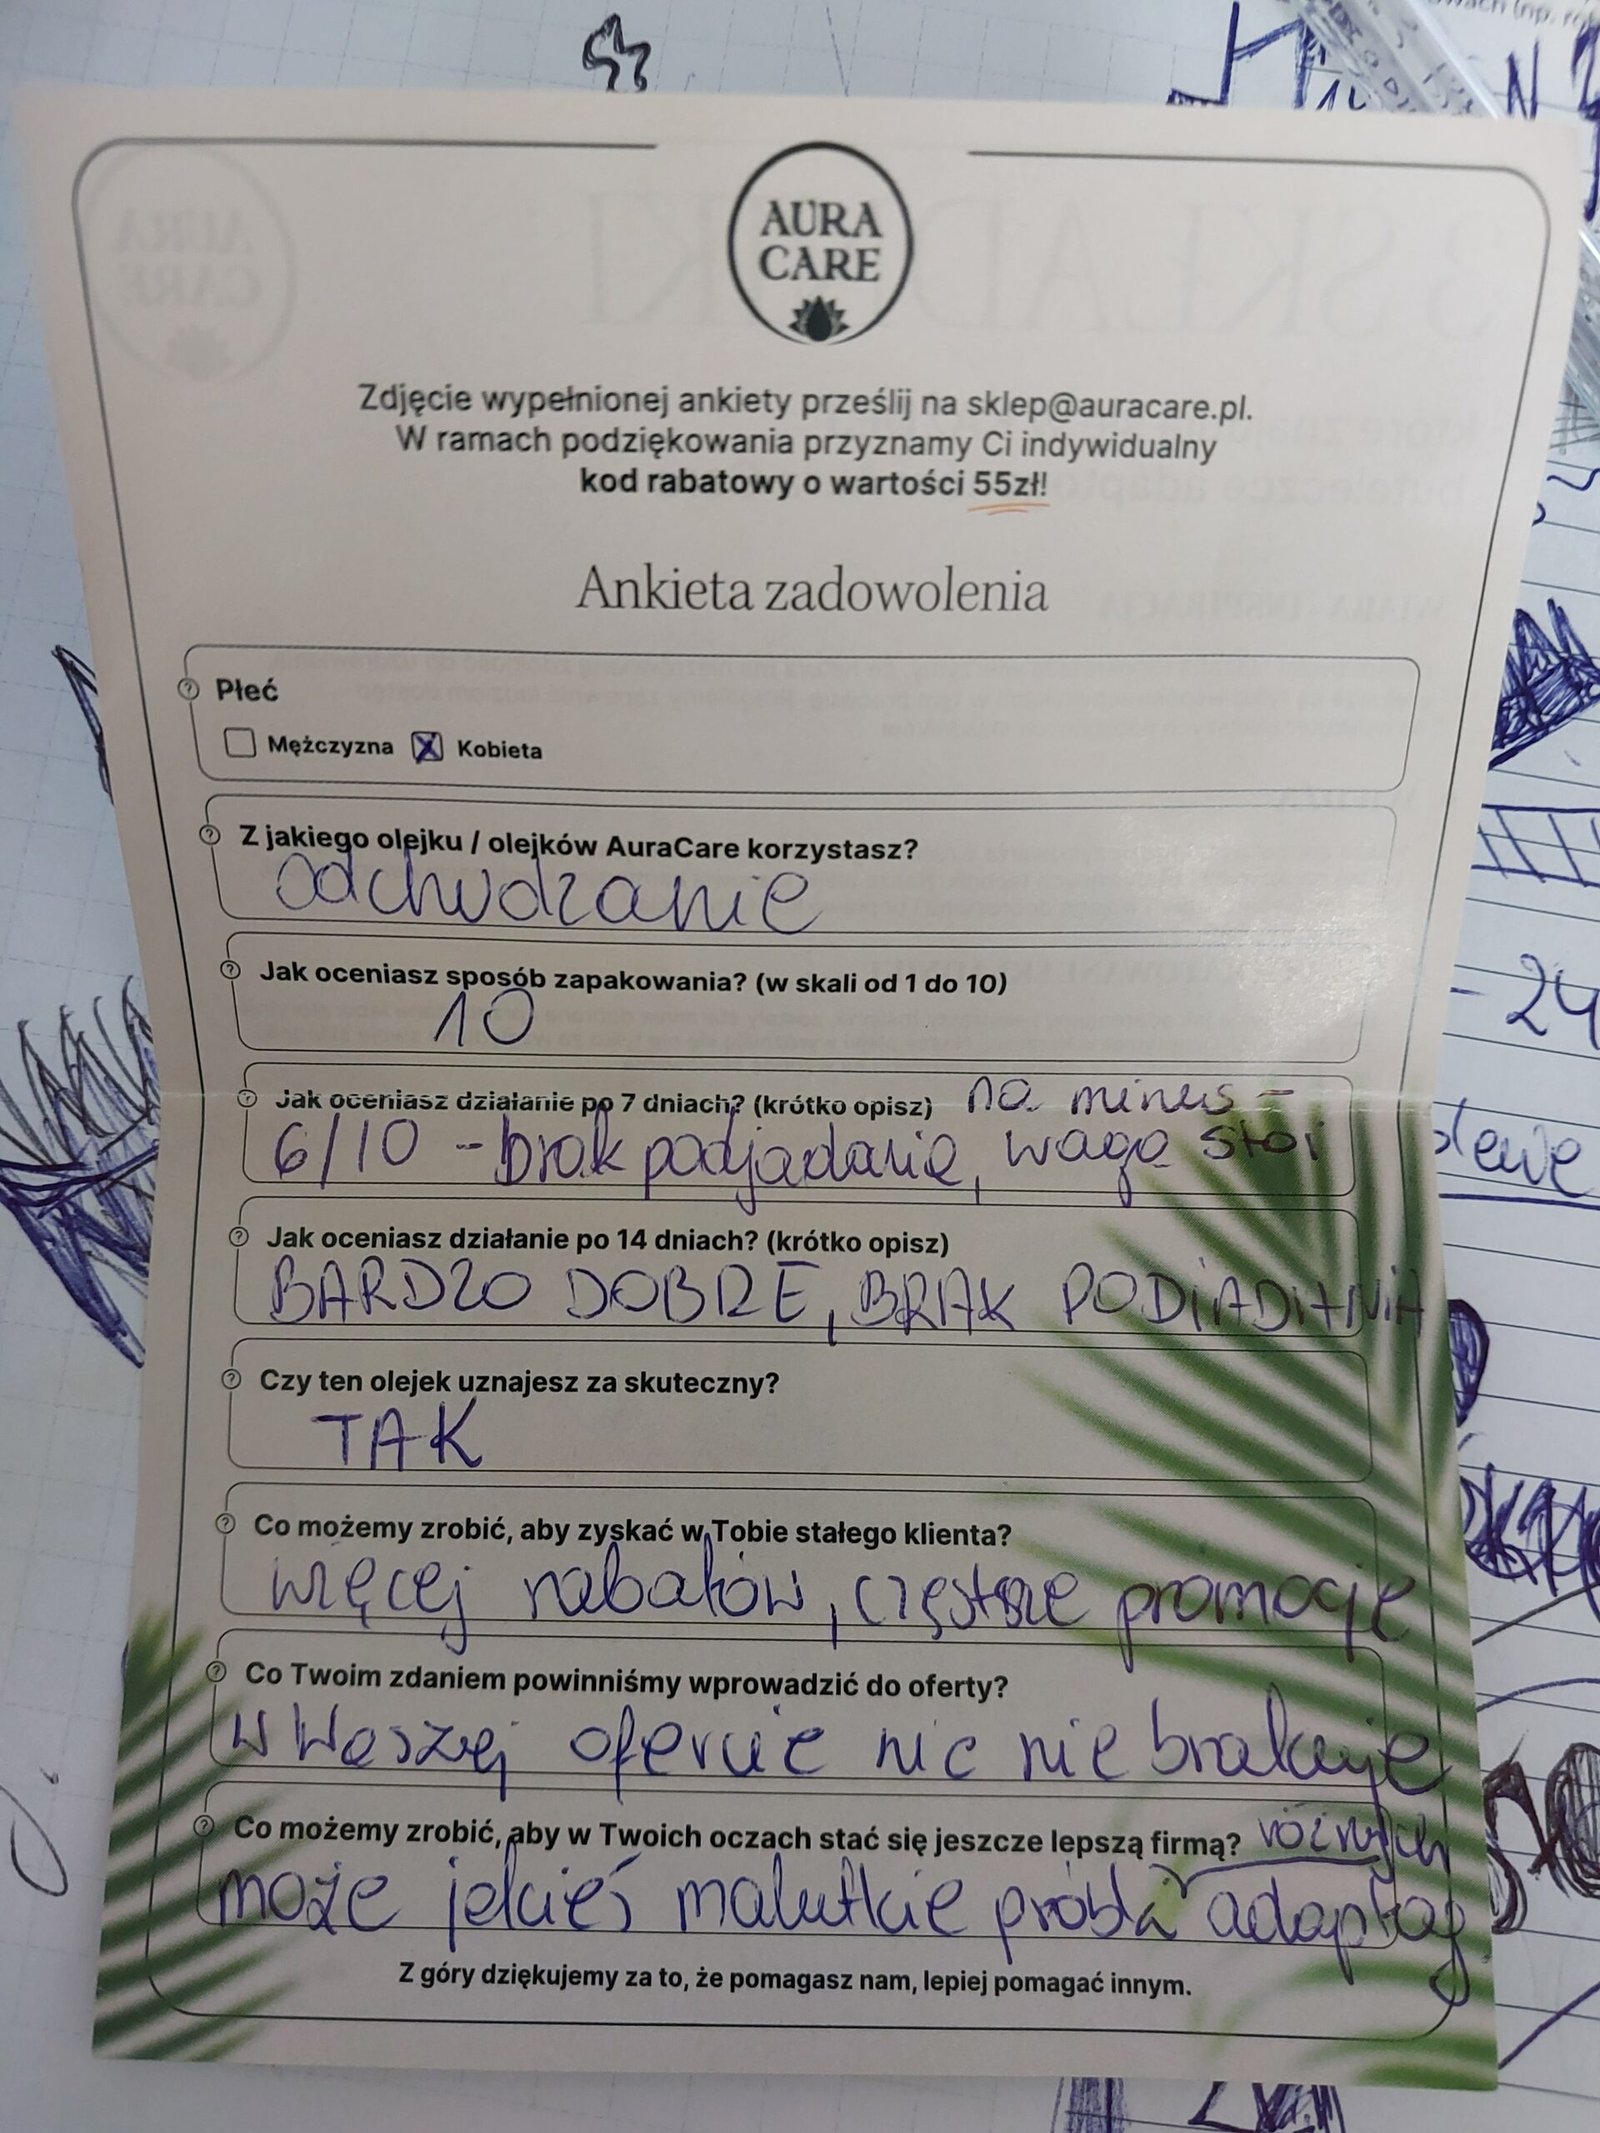 AURA
CARE
Zdjęcie wypełnionej ankiety prześlij na sklep@auracare.pl.
W ramach podziękowania przyznamy Ci indywidualny
kod rabatowy o wartości 55zł!
Ankieta zadowolenia
Płeć
Mężczyzna X Kobieta
Z jakiego olejku / olejków AuraCare korzystasz?
odchudzanie
Jak oceniasz sposób zapakowania? (w skali od 1 do 10)
10
Jak oceniasz działanie po 7 dniach? (krótko opisz) na minus -
6/10 - brak podjadania, waga stoi
Jak oceniasz działanie po 14 dniach? (krótko opisz)
BARDZO DOBRE, BRAK PODJADANIA
Czy ten olejek uznajesz za skuteczny?
TAK
Co możemy zrobić, aby zyskać w Tobie stałego klienta?
więcej rabatów, częstsze promocje
Co Twoim zdaniem powinniśmy wprowadzić do oferty?
w Waszej ofercie nic nie brakuje
Co możemy zrobić, aby w Twoich oczach stać się jeszcze lepszą firmą? różnych
może jakieś malutkie próbki adaptog
Z góry dziękujemy za to, że pomagasz nam, lepiej pomagać innym.
- 24